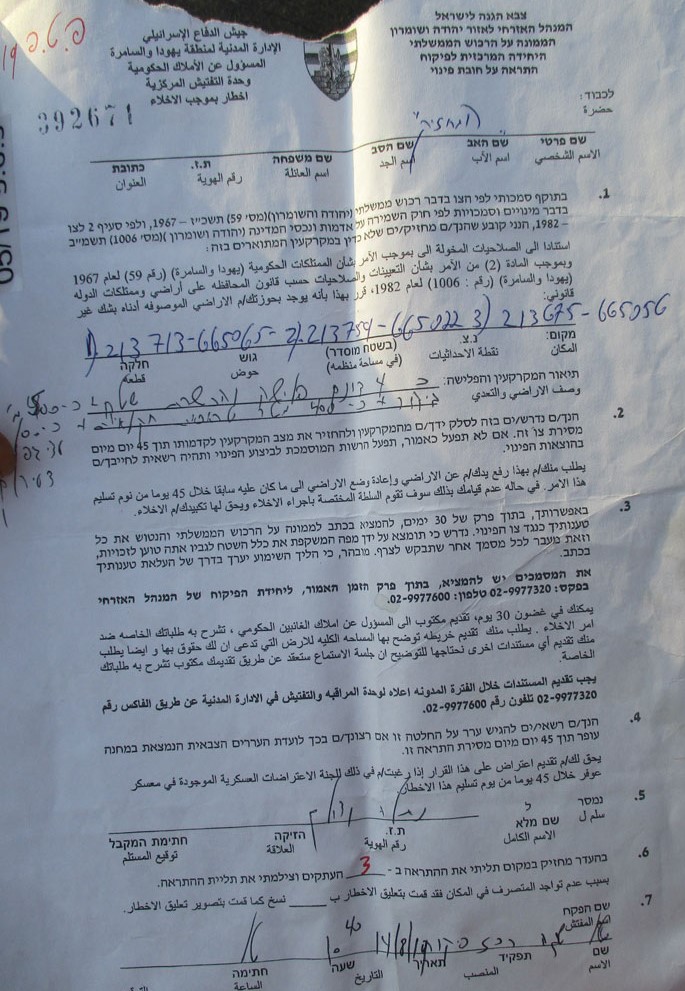 צבא הגנה לישראל
המנהל האזרחי לאזור יהודה ושומרון
הממונה על הרכוש הממשלתי
היחידה המרכזית לפיקוח
התראה על חובת פינוי
جيش الدفاع الإسرائيلي
الإدارة المدنية لمنطقة يهودا والسامرة
المسؤول عن الأملاك الحكومية
وحدة التفتيش المركزية
اخطار بموجب الاخلاء
392671
לכבוד:
حضرة
שם פרטי שם האב שם הסב שם משפחה ת.ז. כתובת
الاسم الشخصي اسم الأب اسم الجد اسم العائلة رقم الهوية العنوان
1. בתוקף סמכותי לפי הצו בדבר רכוש ממשלתי (יהודה והשומרון)(מס' 59) תשכ"ז – 1967, ולפי סעיף 2 לצו
בדבר מינויים וסמכויות לפי חוק השמירה על אדמות ונכסי המדינה (יהודה ושומרון )(מס' 1006) תשמ"ב
– 1982, הנני קובע שהנך/ם מחזיק/ים שלא כדין במקרקעין המתוארים בזה:
استنادا الى الصلاحيات المخولة الي بموجب الأمر بشأن الممتلكات الحكومية (يهودا والسامرة) (رقم 59) لعام 1967
وبموجب المادة (2) من الأمر بشأن التعيينات والصلاحيات حسب قانون المحافظه على أراضي وممتلكات الدوله
(يهودا والسامرة) (رقم : 1006) لعام 1982، قرر بهذا بأنه يوجد بحوزتك/م الاراضي الموصوفه أدناه بشك غير
قانوني:
1). 213713-665065- 2). 213754-665022 3) 213675-665056
מקום: נ.צ. (בשטח מוסדר) גוש חלקה
المكان نقطة الاحداثيات (في مساحة منظمه) حوض قطعه
תיאור המקרקעין והפלישה:
وصف الاراضي والتعدي
2. הנך/ם נדרש/ים בזה לסלק ידך/ם מהמקרקעין ולהחזיר את מצב המקרקעין לקדמותו תוך 45 יום מיום
מסירת צו זה. אם לא תפעל כאמור, תפעל הרשות המוסמכת לביצוע הפינוי ותהיה רשאית לחייבך/ם
בהוצאות הפינוי.
يطلب منك/م بهذا رفع يدك/م عن الاراضي وإعادة وضع الاراضي الى ما كان عليه سابقا خلال 45 يوما من نوم تسليم
هذا الامر. في حاله عدم قيامك بذلك سوف تقوم السلطة المختصة باجراء الاخلاء ويحق لها تكبيدك/م الاخلاء.
3. באפשרותך, בתוך פרק של 30 ימים, להמציא בכתב לממונה על הרכוש הממשלתי והנטוש את כל
טענותיך כנגד צו הפינוי. נדרש כי תומצא על ידך מפה המשקפת את כלל השטח לגביו אתה טוען לזכויות,
וזאת מעבר לכל מסמך אחר שתבקש לצרף. מובהר, כי הליך השימוע יערך בדרך של העלאת טענותיך
בכתב.
את המסמכים יש להמציא, בתוך פרק הזמן האמור, ליחידת הפיקוח של המנהל האזרחי
בפקס: 02-9977320 טלפון: 02-9977600.
يمكنك في غضون 30 يوم، تقديم مكتوب الى المسؤول عن املاك الغائبين الحكومي ، تشرح به طلباتك الخاصه ضد
امر الاخلاء . يطلب منك تقديم خريطه توضح بها المساحه الكليه للارض التي تدعى ان لك حقوق بها و ايضا يطلب
منك تقديم أي مستندات اخرى نحتاجها للتوضيح ان جلسة الاستماع ستعقد عن طريق تقديمك مكتوب تشرح به طلباتك
الخاصة.
يجب تقديم المستندات خلال الفترة المدونه اعلاه لوحدة المراقبه والتفتيش في الادارة المدنية عن طريق الفاكس رقم
02-9977320 تلفون رقم 02-9977600.
4. הנך/ם רשאי/ים להגיש ערר על החלטה זו אם רצונך/ם בכך לועדת העררים הצבאית הנמצאת במחנה
עופר תוך 45 יום מיום מסירת התראה זו.
يحق لك/م تقديم اعتراض على هذا القرار إذا رغبت/م في ذلك للجنة الاعتراضات العسكرية الموجودة في معسكر
عوفر خلال 45 يوما من يوم تسليم هذا الاخطار
5. נמסר ל
سلم ل
שם מלא ת.ז. הזיקה חתימת המקבל
الاسم الكامل رقم الهوية العلاقة توقيع المستلم
6. בהעדר מחזיק במקום תליתי את ההתראה ב - 3 העתקים וצילמתי את תליית ההתראה.
بسبب عدم تواجد المتصرف في المكان فقد قمت بتعليق الاخطار ب ____ نسخ كما قمت بتصوير تعليق الاخطار.
7. שם הפקח
اسم المفتش
שם תפקיד תאריך שעה חתימה
الاسم المنصب التاريخ الساعة